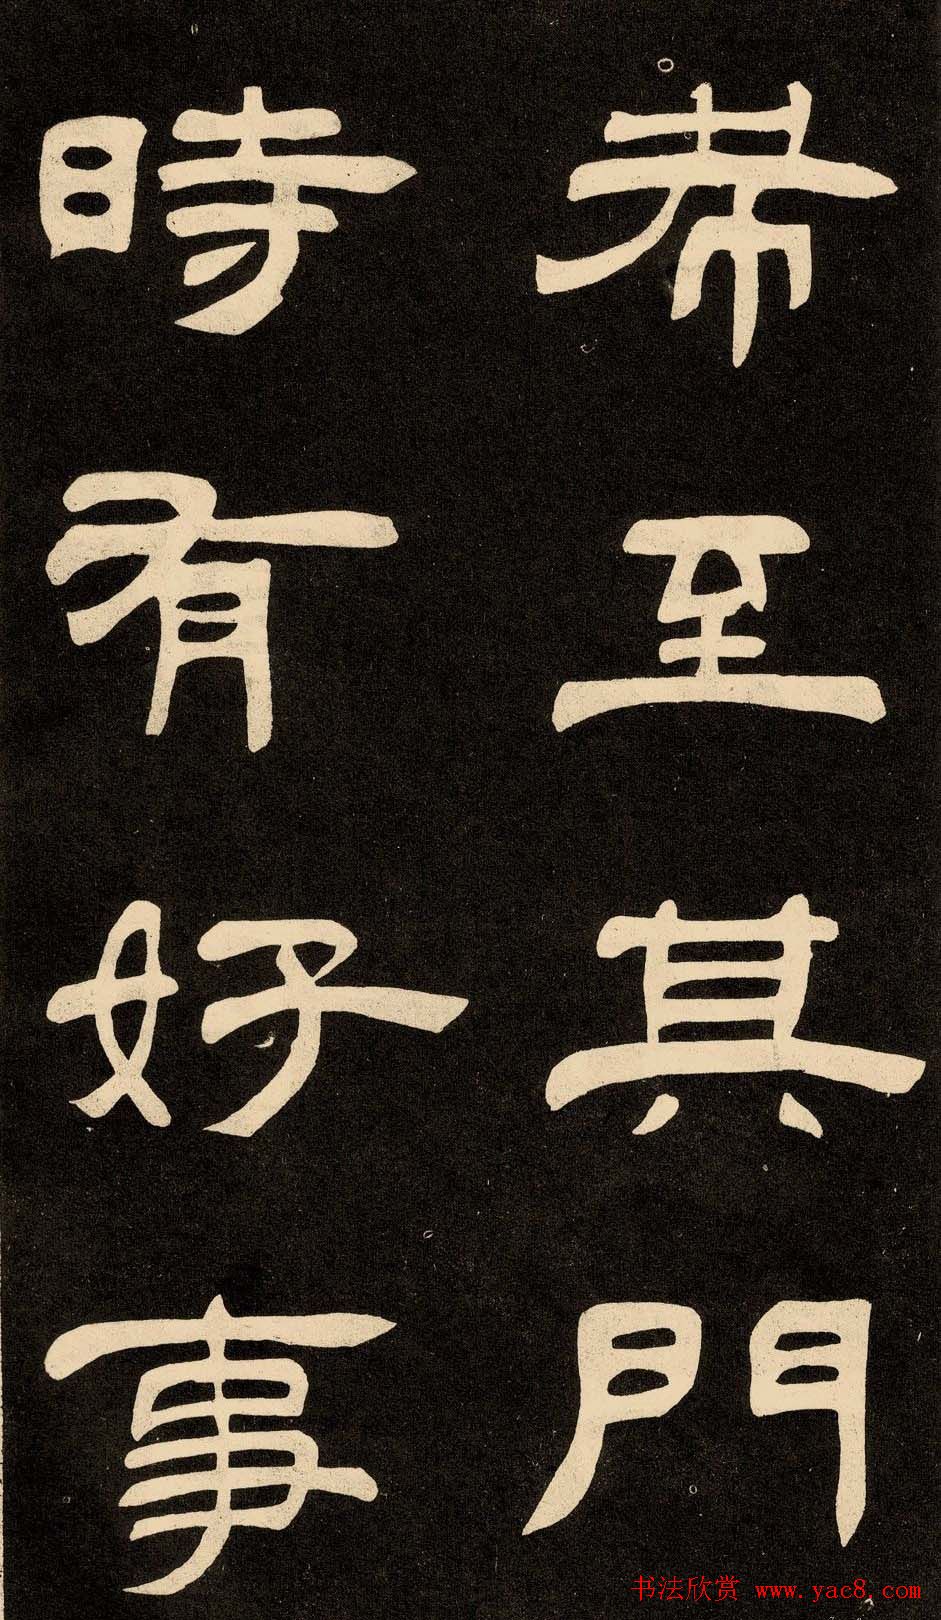 希至其門
時有好事
书法欣赏 www.yac8.com